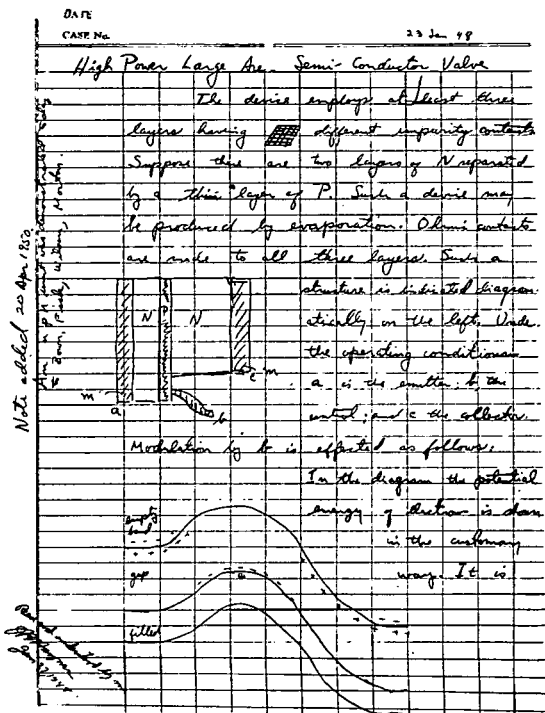 DATE
CASE No.
23 Jan 48
High Power Large Area Semi-Conductor Valve
The device employs at least three
layers having different impurity contents.
Suppose there are two layers of N separated
by a thin layer of P. Such a device may
be produced by evaporation. Ohmic contacts
are made to all three layers. Such a
structure is indicated diagram-
atically on the left. Under
the operating conditions
a is the emitter, b the
control, and c the collector.
Modulation by b is effected as follows:
In the diagram the potential
energy of electrons is shown
in the customary
way. It is
N
P
N
m
a
b
c
m
empty
band
gap
filled
Note added 20 Apr 1950.
An n p n unit was demonstrated today
to Bown, Fisk, Wilson, Morton.
Read and understood by me